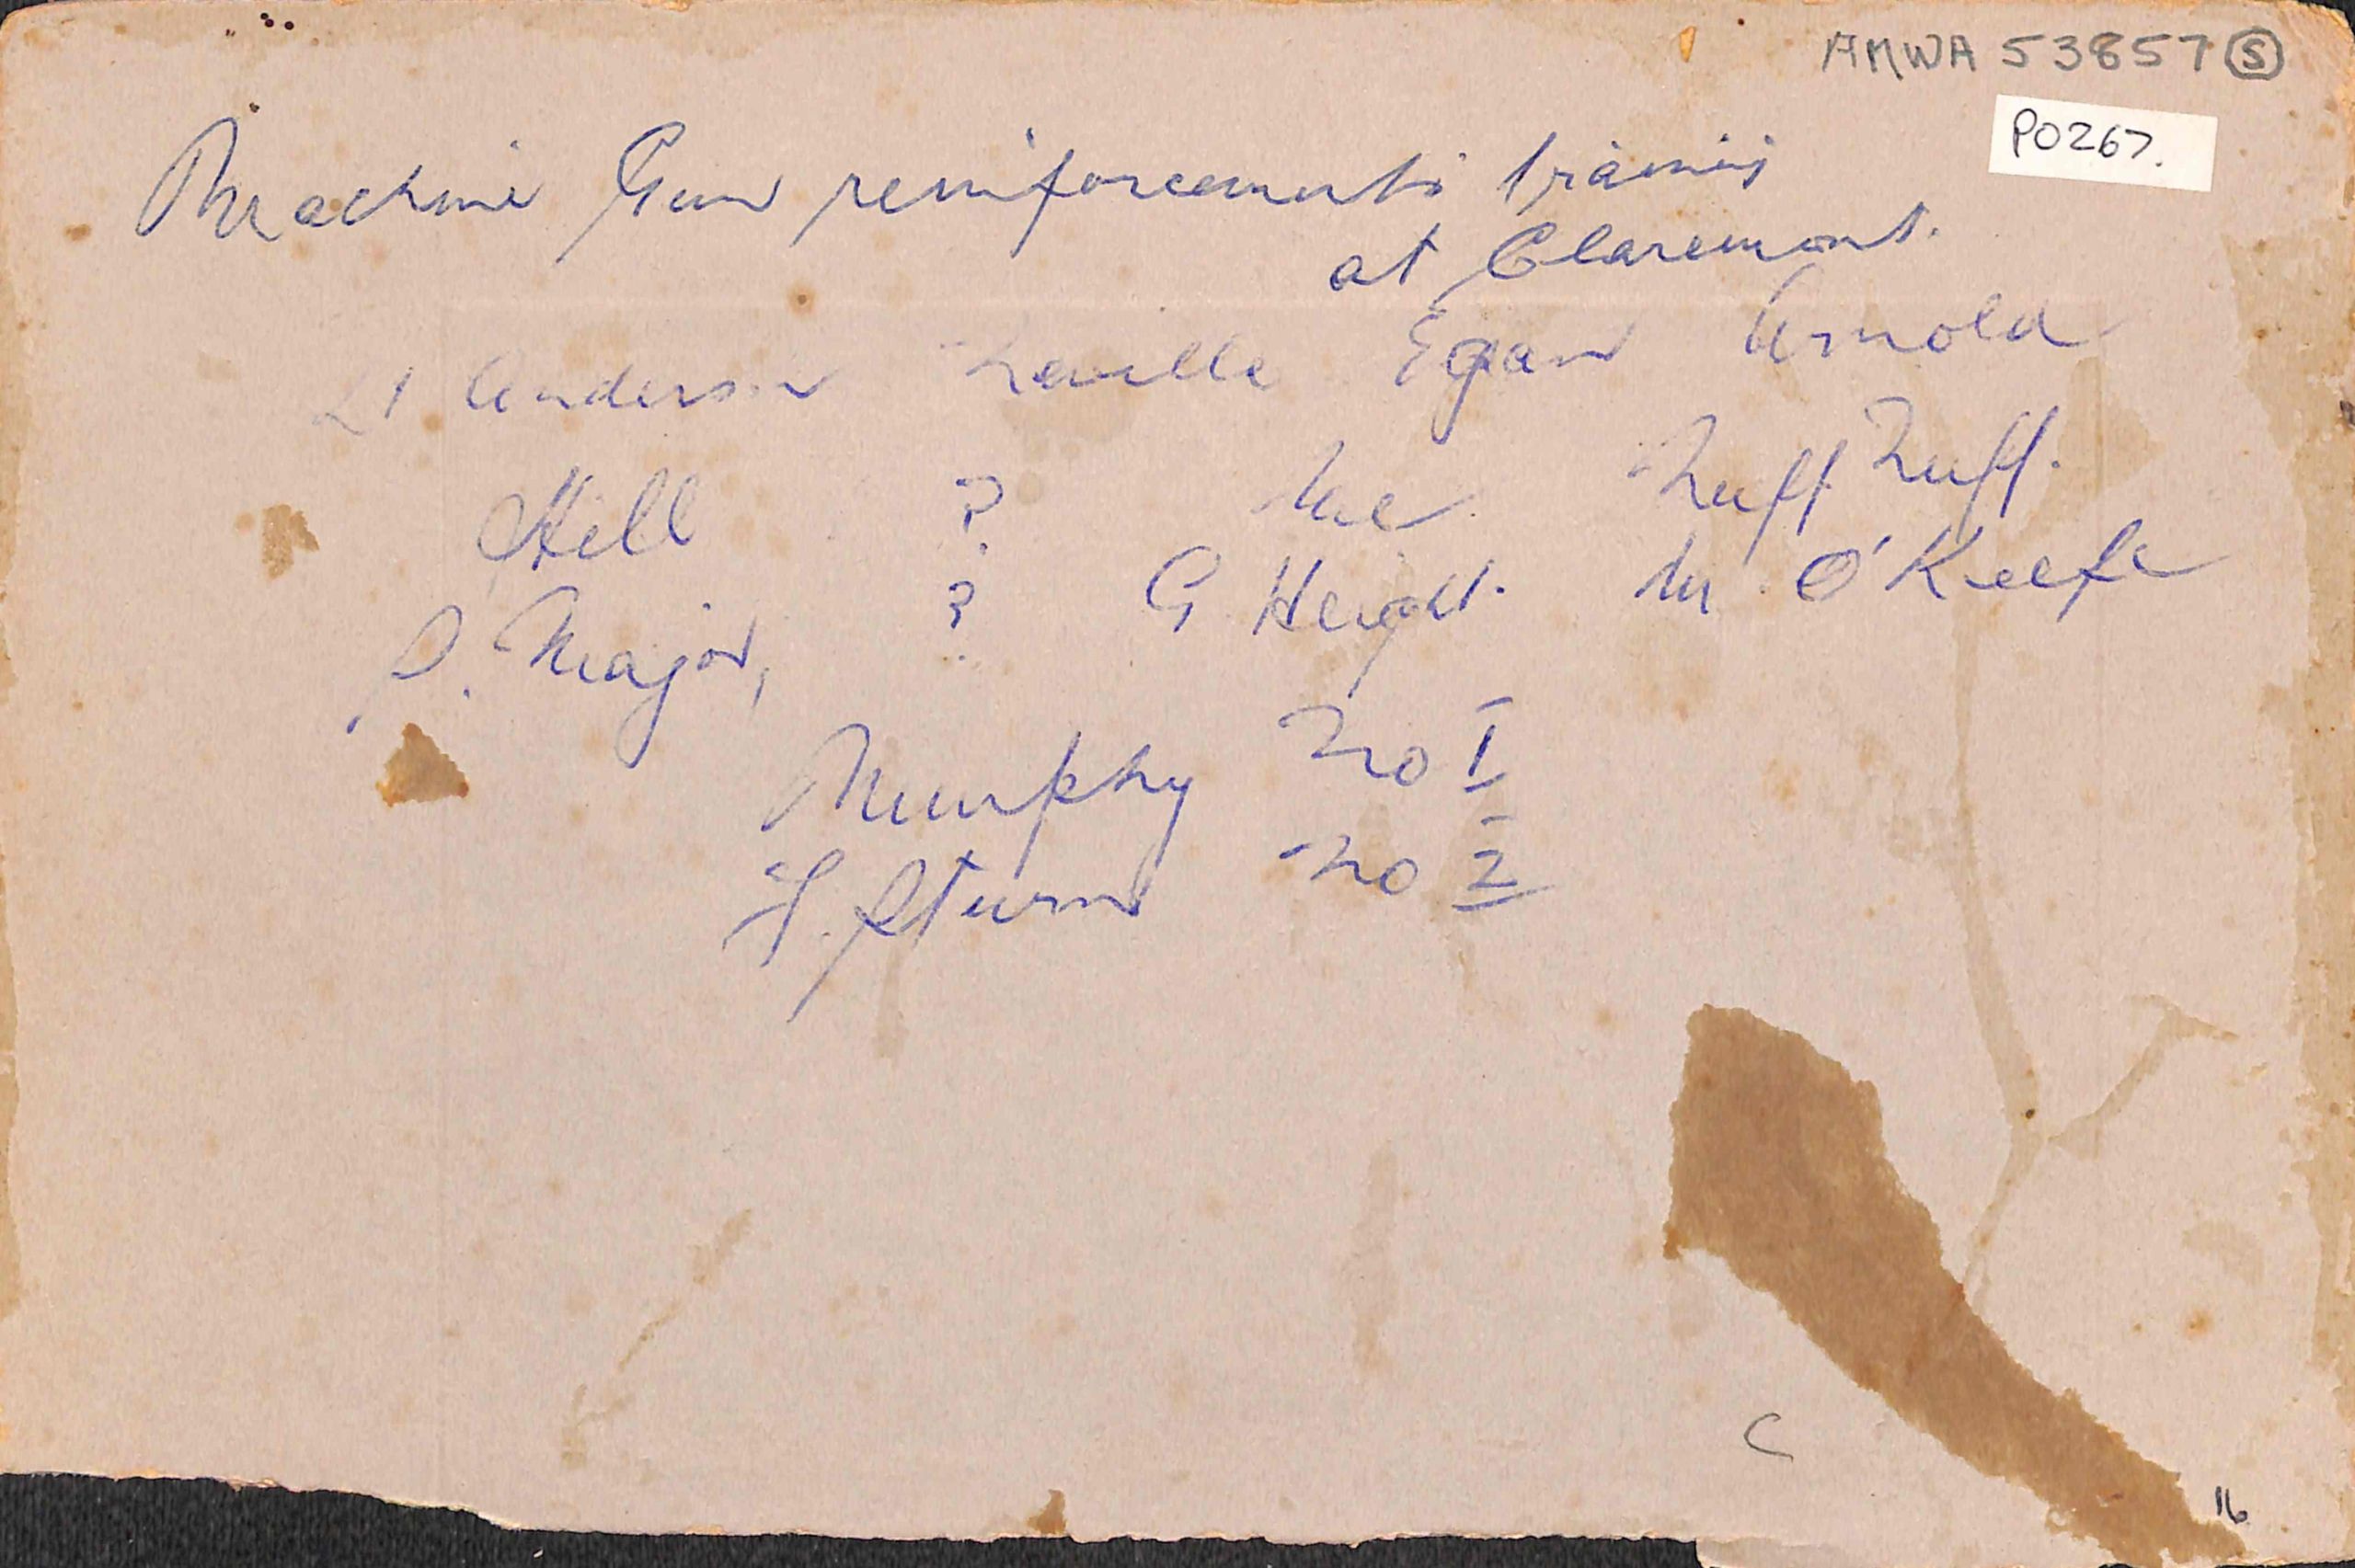 AMWA 53857 (S)
P0267.
Machine Gun reinforcements training
at Claremont.
Lt Anderson Neville Egan Arnold
Hill ? Me Nuff Nuff.
P. Major, ? G Height. Mr O'Keefe
Murphy No I
H. Sturm No 2
C
16